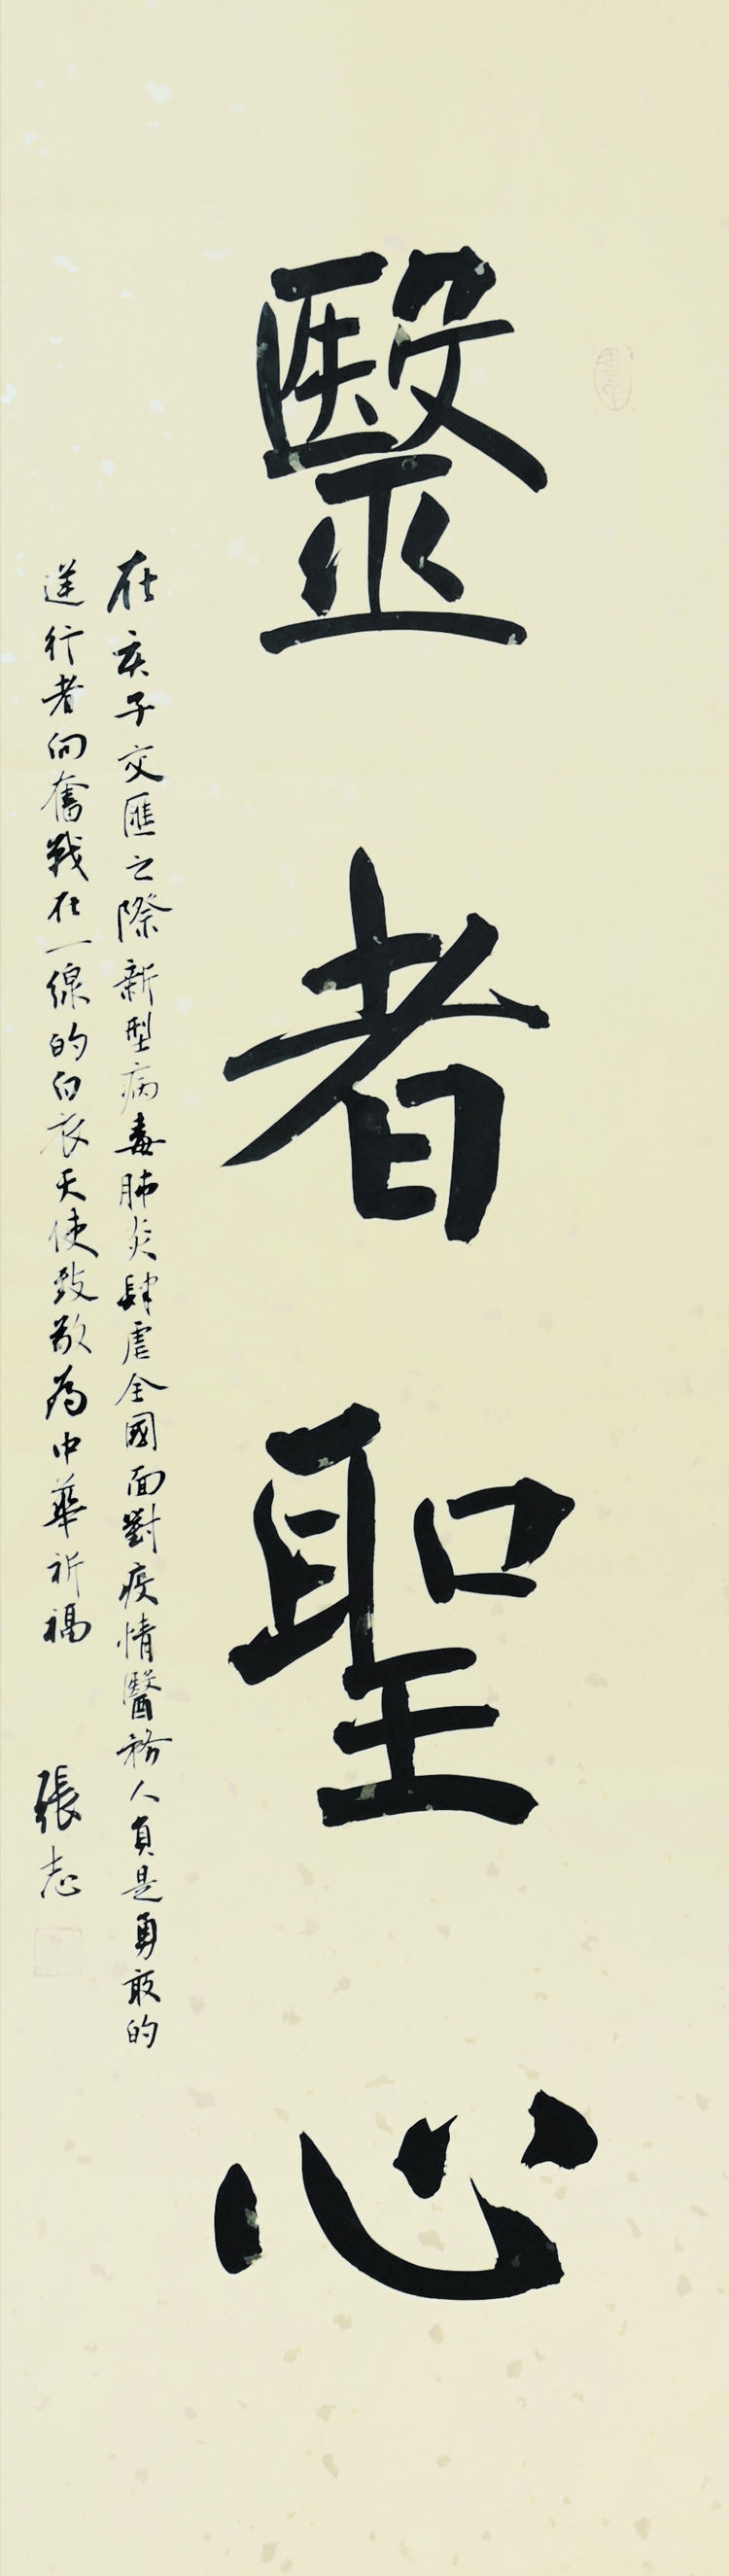 毉者聖心
在亥子交匯之際新型病毒肺炎肆虐全國面對疫情醫務人員是勇敢的
逆行者向奮戰在一線的白衣天使致敬為中華祈福
張志